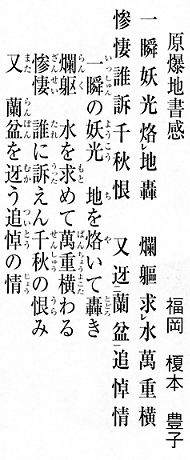 原爆地書感
福岡 榎本 豊子
一瞬妖光烙レ地轟 爛軀求レ水萬重横
惨悽誰訴千秋恨 又迓二蘭盆一追悼情
一瞬の妖光 地を烙いて轟き
爛軀 水を求めて萬重横わる
惨悽 誰に訴えん千秋の恨み
又 蘭盆を迓う追悼の情